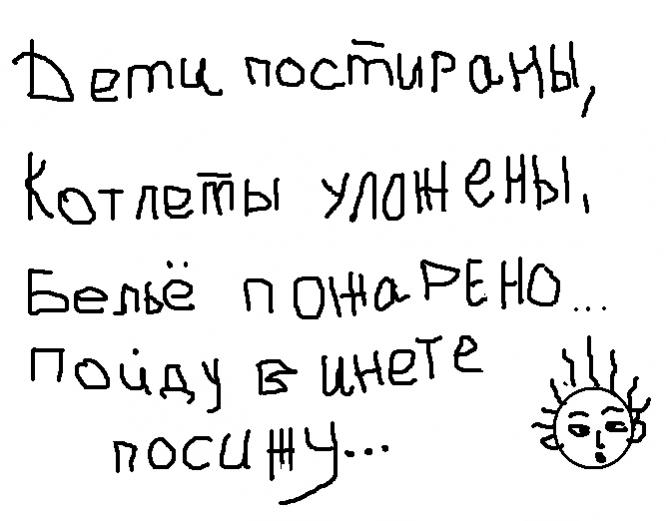 Дети постираны,
Котлеты уложены,
Бельё пожарено...
Пойду в инете
посижу...